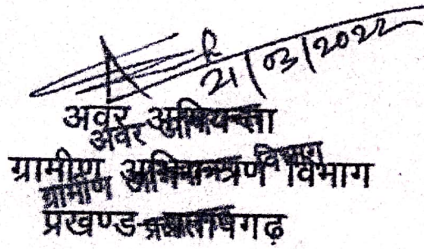 21/03/2022
अवर अभियन्ता
ग्रामीण अभियन्त्रण विभाग
प्रखण्ड-प्रतापगढ़